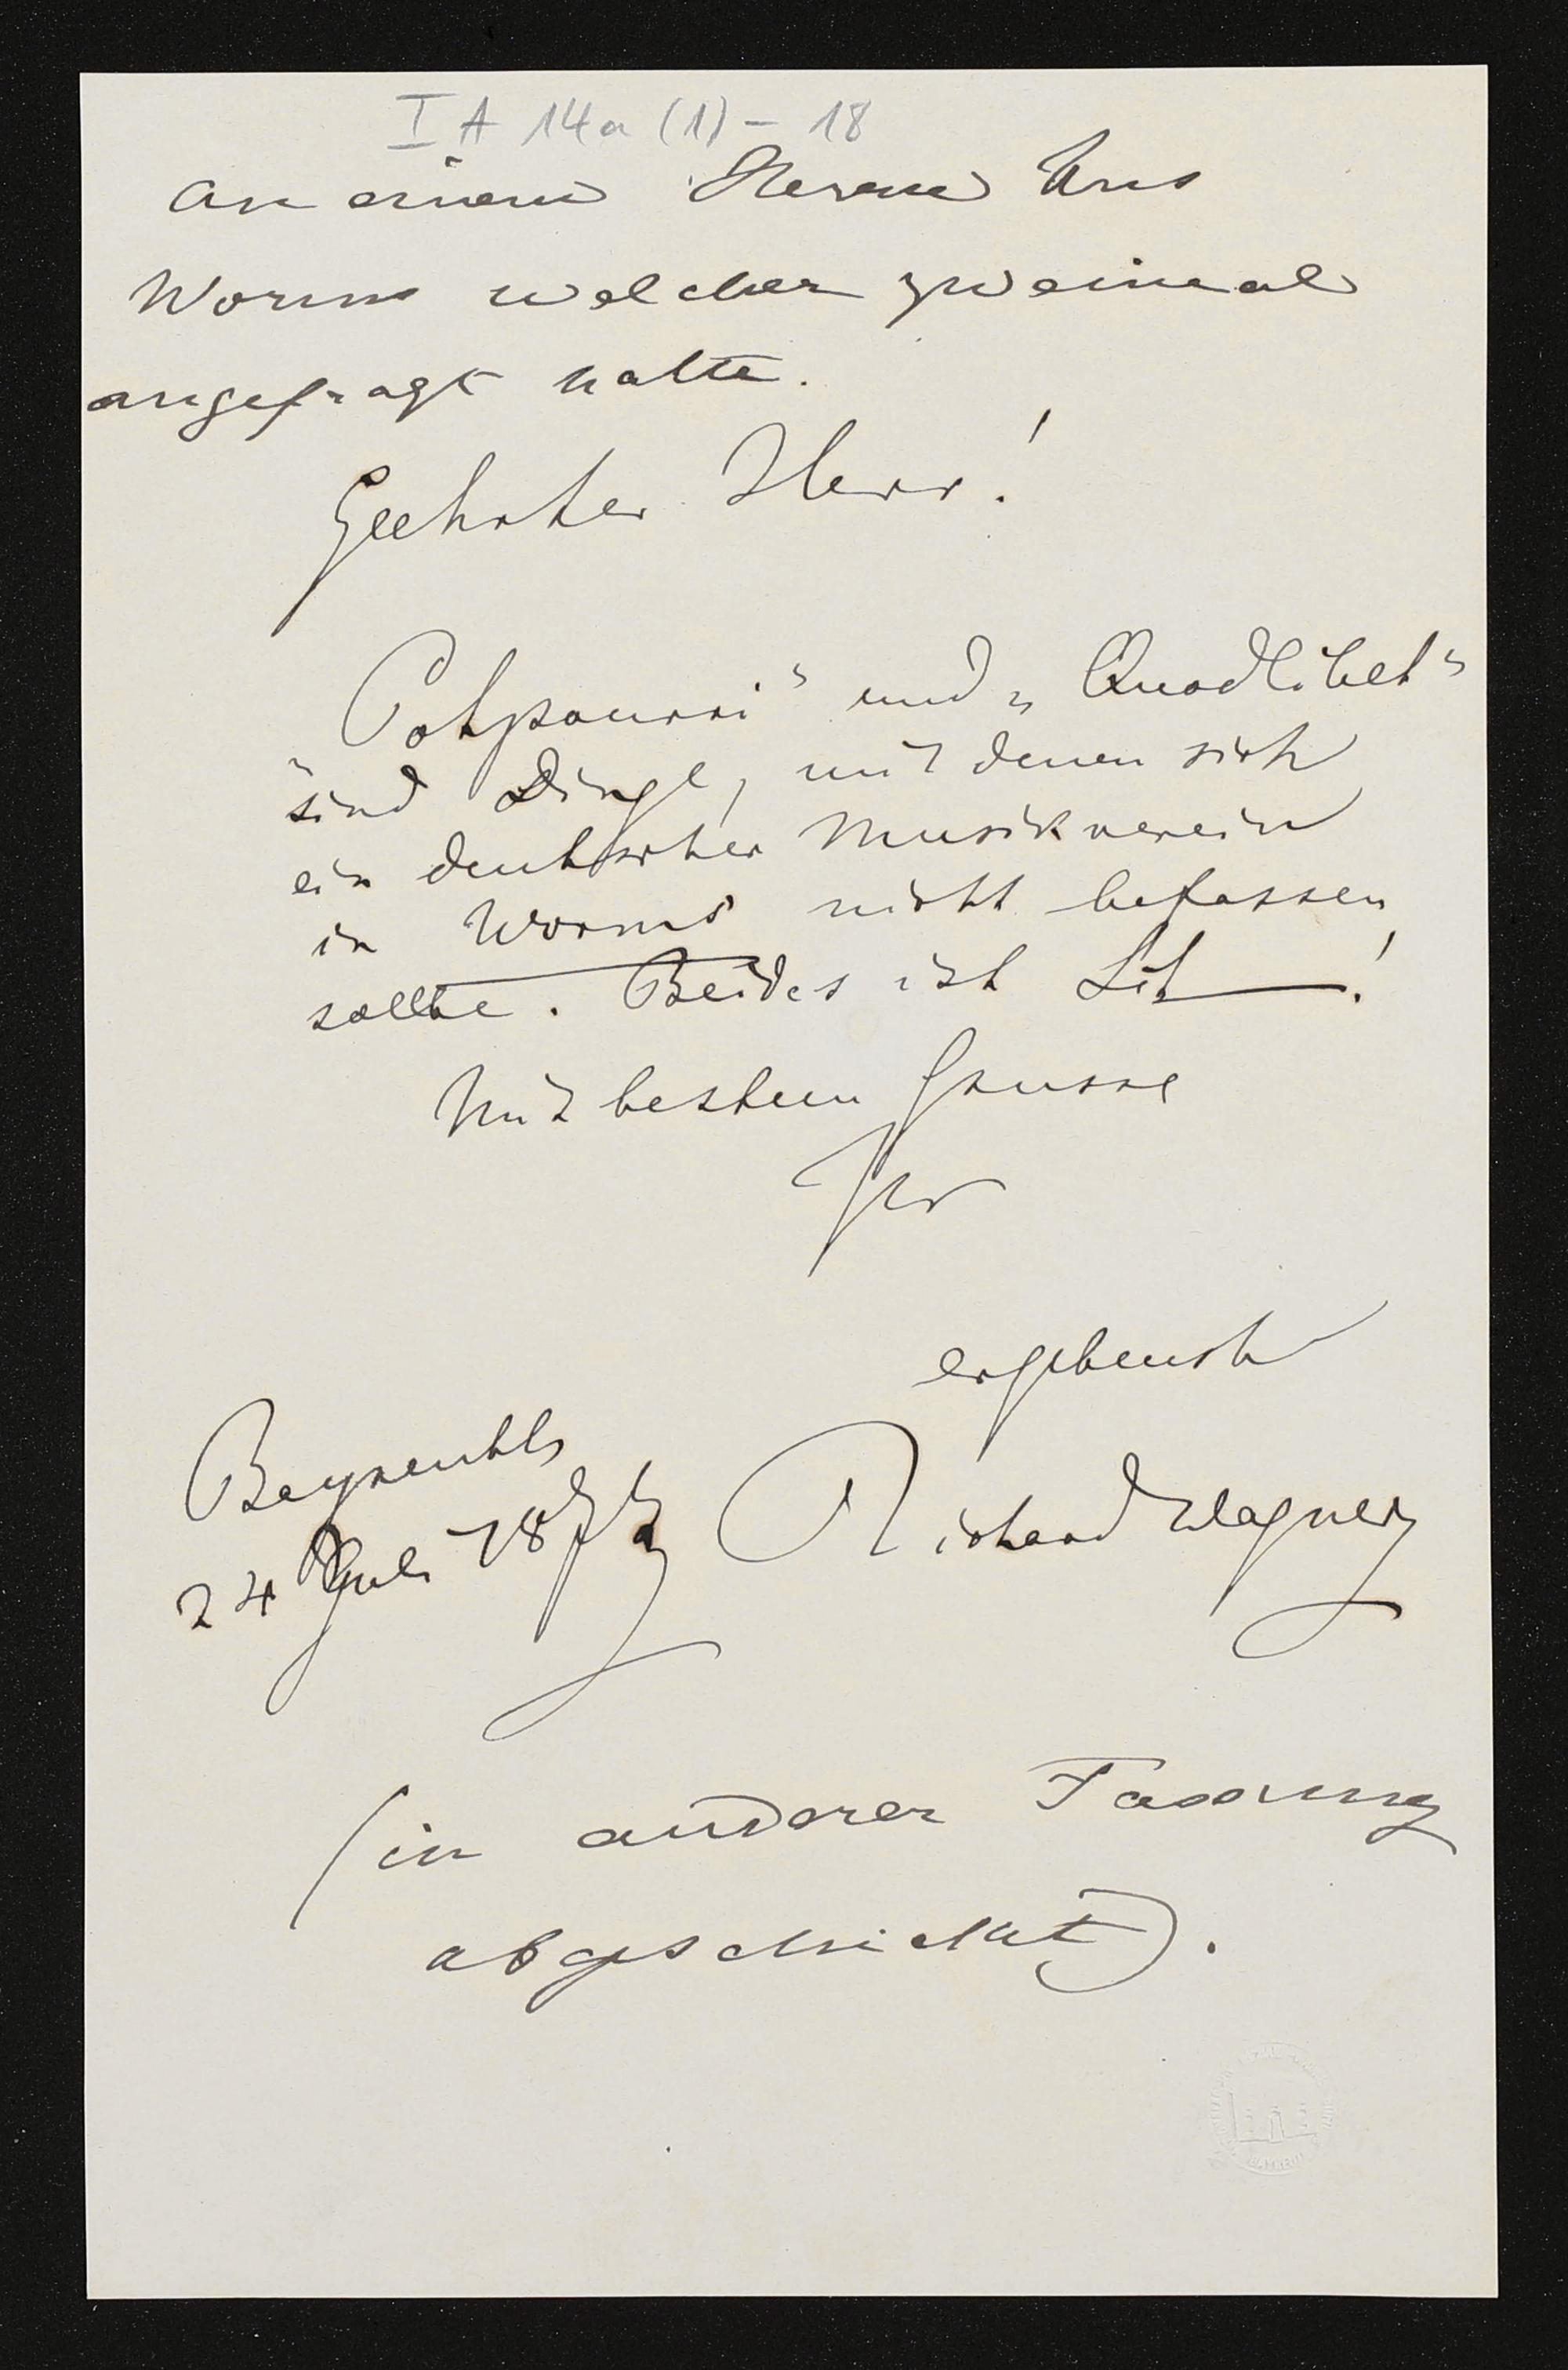 I A 14a (1) - 18
An einen Herrn aus
Worms welcher zweimal
angefragt hatte.
Geehrter Herr!
„Potpourri“ und „Quodlibet“
sind Dinge, mit denen sich
ein deutscher Musikverein
in Worms nicht befassen
sollte. Beides ist
Mit bestem Grusse
Ihr
ergebenst
Bayreuth
24 Juli Richard Wagner
(in anderer Fassung
abgeschickt).